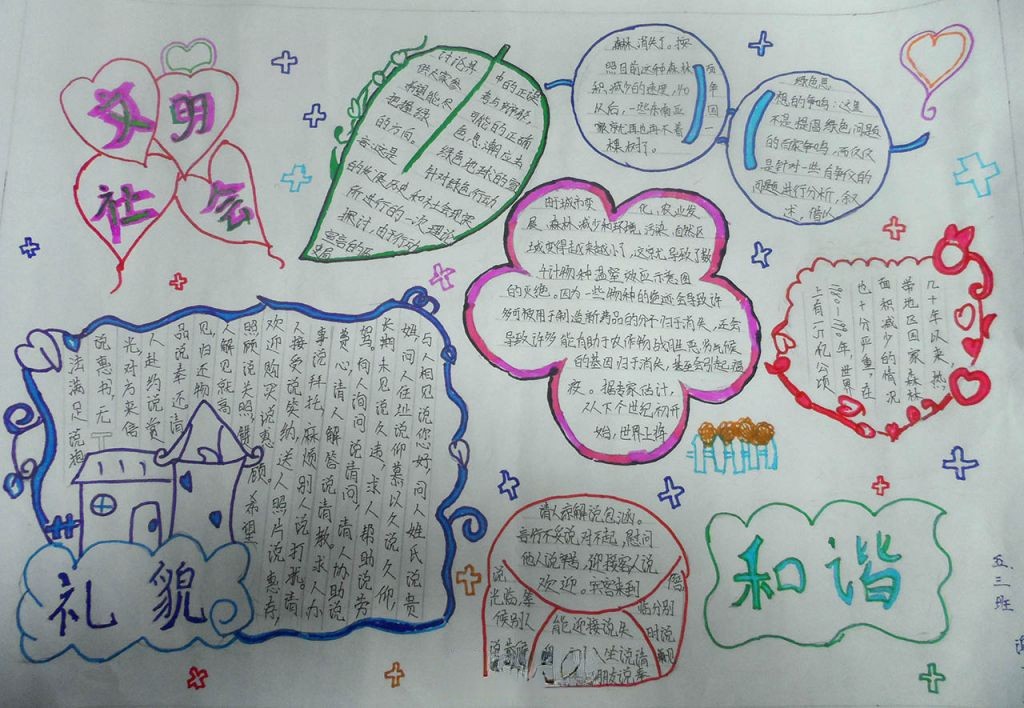 文明
社会
讨论界
供大家参
希望能尽
把握绿
的方向。
中的正误
考与辨析,
可能的正确
色思潮应去
绿色地球的宣
针对绿色行动
的发展历史和社会现实
所进行的一次理论
探讨,由于行动
森林消失了。按
照目前这种森林
积减少的速度,40
以后,一些东南亚
国家就再也再不着
棵树了。
绿色思
想的争鸣:这里
不是提倡绿色问题
的百家争鸣,而仅仅
是针对一些有争议的
问题进行分析,叙
述,借以
由于城市变化,农业发
展,森林减少和环境污染,自然区
域变得越来越小了,这就导致了数
以计物种
的灭绝。因为一些物种的绝迹会导致许
多可被用于制造新药品的分子归于消失,还会
导致许多能有助于农作物战胜恶劣气候
的基因归于消失,甚至会引起瘟
疫。据专家估计,
从下个世纪初开
始,世界上将
几十年以来,热
带地区国家森林
面积减少的情况
也十分严重,在
1980-1990年,世界
上有1.5亿公顷
与人相见说你好,问人姓氏说贵
姓,问人住址说
仰慕已久说久仰,
长期未见说久违,求人帮助说劳
驾,向人询问说请问,请人协助说
费心,请人解答说请教,求人办
事说拜托,麻烦别人说打扰,
人接受说笑纳,送人照片说惠存,
欢迎购买说惠顾,希望
照顾说关照,
人解见说高
见,归还物
品说奉还,请
人赴约说赏
光,对方来信
说惠书,无
法满足说抱
礼貌
请人谅解说包涵。
言行不妥说对不起,慰问
他人说辛苦,迎接客人说
欢迎。宾客来到
说
光临,等
候别人
能迎接说失
临分别
时说
人坐说请
朋友说奉
和谐
五.三班